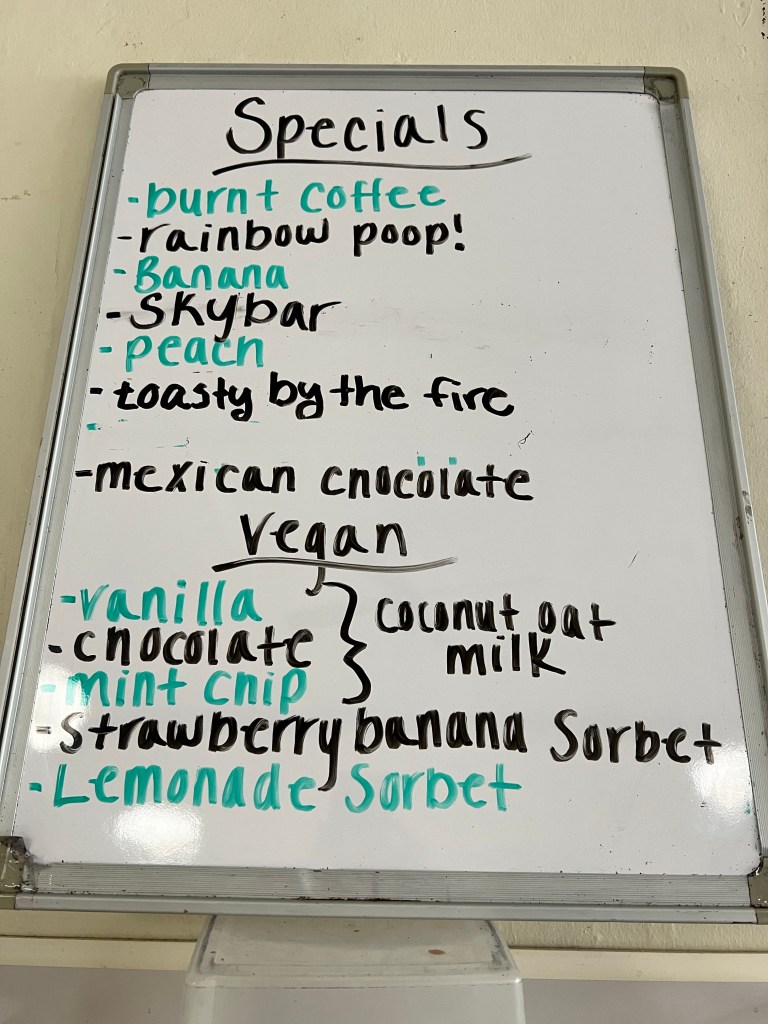 Specials
-burnt coffee
-rainbow poop!
-Banana
-skybar
-peach
-toasty by the fire
-
-mexican chocolate
Vegan
-vanilla
-chocolate
-mint chip
} coconut oat milk
-strawberry banana Sorbet
-Lemonade Sorbet